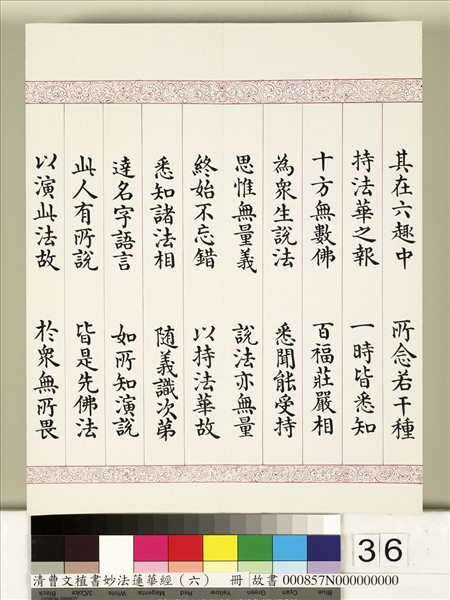 其在六趣中　所念若干種
持法華之報　一時皆悉知
十方無數佛　百福莊嚴相
為衆生說法　悉聞能受持
思惟無量義　說法亦無量
終始不忘錯　以持法華故
悉知諸法相　隨義識次第
達名字語言　如所知演說
此人有所說　皆是先佛法
以演此法故　於衆無所畏
36
清曹文植書妙法蓮華經（六）　冊　故書 000857N000000000